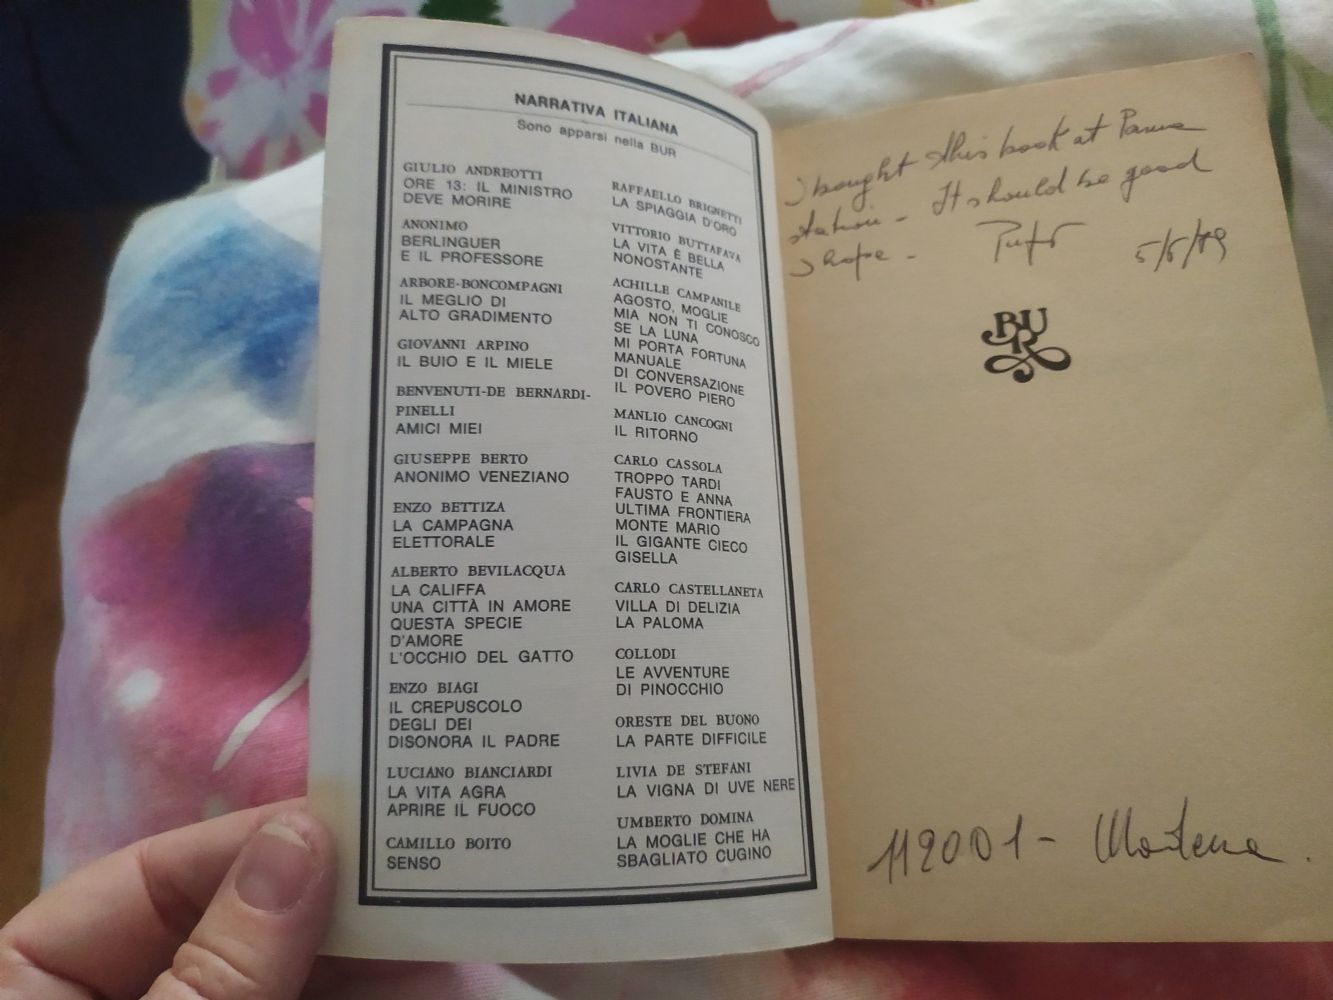 NARRATIVA ITALIANA
Sono apparsi nella BUR
GIULIO ANDREOTTI
ORE 13: IL MINISTRO
DEVE MORIRE
ANONIMO
BERLINGUER
E IL PROFESSORE
ARBORE-BONCOMPAGNI
IL MEGLIO DI
ALTO GRADIMENTO
GIOVANNI ARPINO
IL BUIO E IL MIELE
BENVENUTI-DE BERNARDI-
PINELLI
AMICI MIEI
GIUSEPPE BERTO
ANONIMO VENEZIANO
ENZO BETTIZA
LA CAMPAGNA
ELETTORALE
ALBERTO BEVILACQUA
LA CALIFFA
UNA CITTÀ IN AMORE
QUESTA SPECIE
D'AMORE
L'OCCHIO DEL GATTO
ENZO BIAGI
IL CREPUSCOLO
DEGLI DEI
DISONORA IL PADRE
LUCIANO BIANCIARDI
LA VITA AGRA
APRIRE IL FUOCO
CAMILLO BOITO
SENSO
RAFFAELLO BRIGNETTI
LA SPIAGGIA D'ORO
VITTORIO BUTTAFAVA
LA VITA È BELLA
NONOSTANTE
ACHILLE CAMPANILE
AGOSTO, MOGLIE
MIA NON TI CONOSCO
SE LA LUNA
MI PORTA FORTUNA
MANUALE
DI CONVERSAZIONE
IL POVERO PIERO
MANLIO CANCOGNI
IL RITORNO
CARLO CASSOLA
TROPPO TARDI
FAUSTO E ANNA
ULTIMA FRONTIERA
MONTE MARIO
IL GIGANTE CIECO
GISELLA
CARLO CASTELLANETA
VILLA DI DELIZIA
LA PALOMA
COLLODI
LE AVVENTURE
DI PINOCCHIO
ORESTE DEL BUONO
LA PARTE DIFFICILE
LIVIA DE STEFANI
LA VIGNA DI UVE NERE
UMBERTO DOMINA
LA MOGLIE CHE HA
SBAGLIATO CUGINO
I bought this book at Parma
station - It should be good
I hope -
BUR